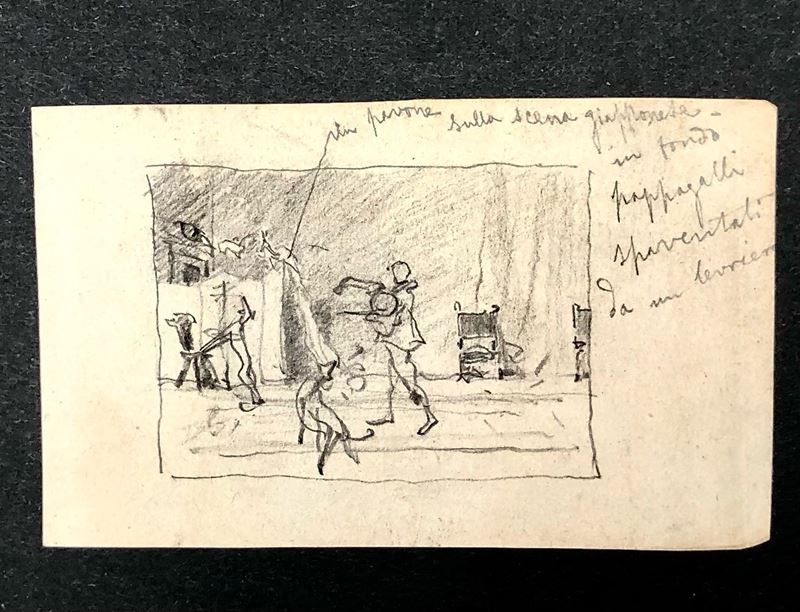 un pavone sulla scena giapponese -
in fondo
pappagalli
spaventati
da un levriero